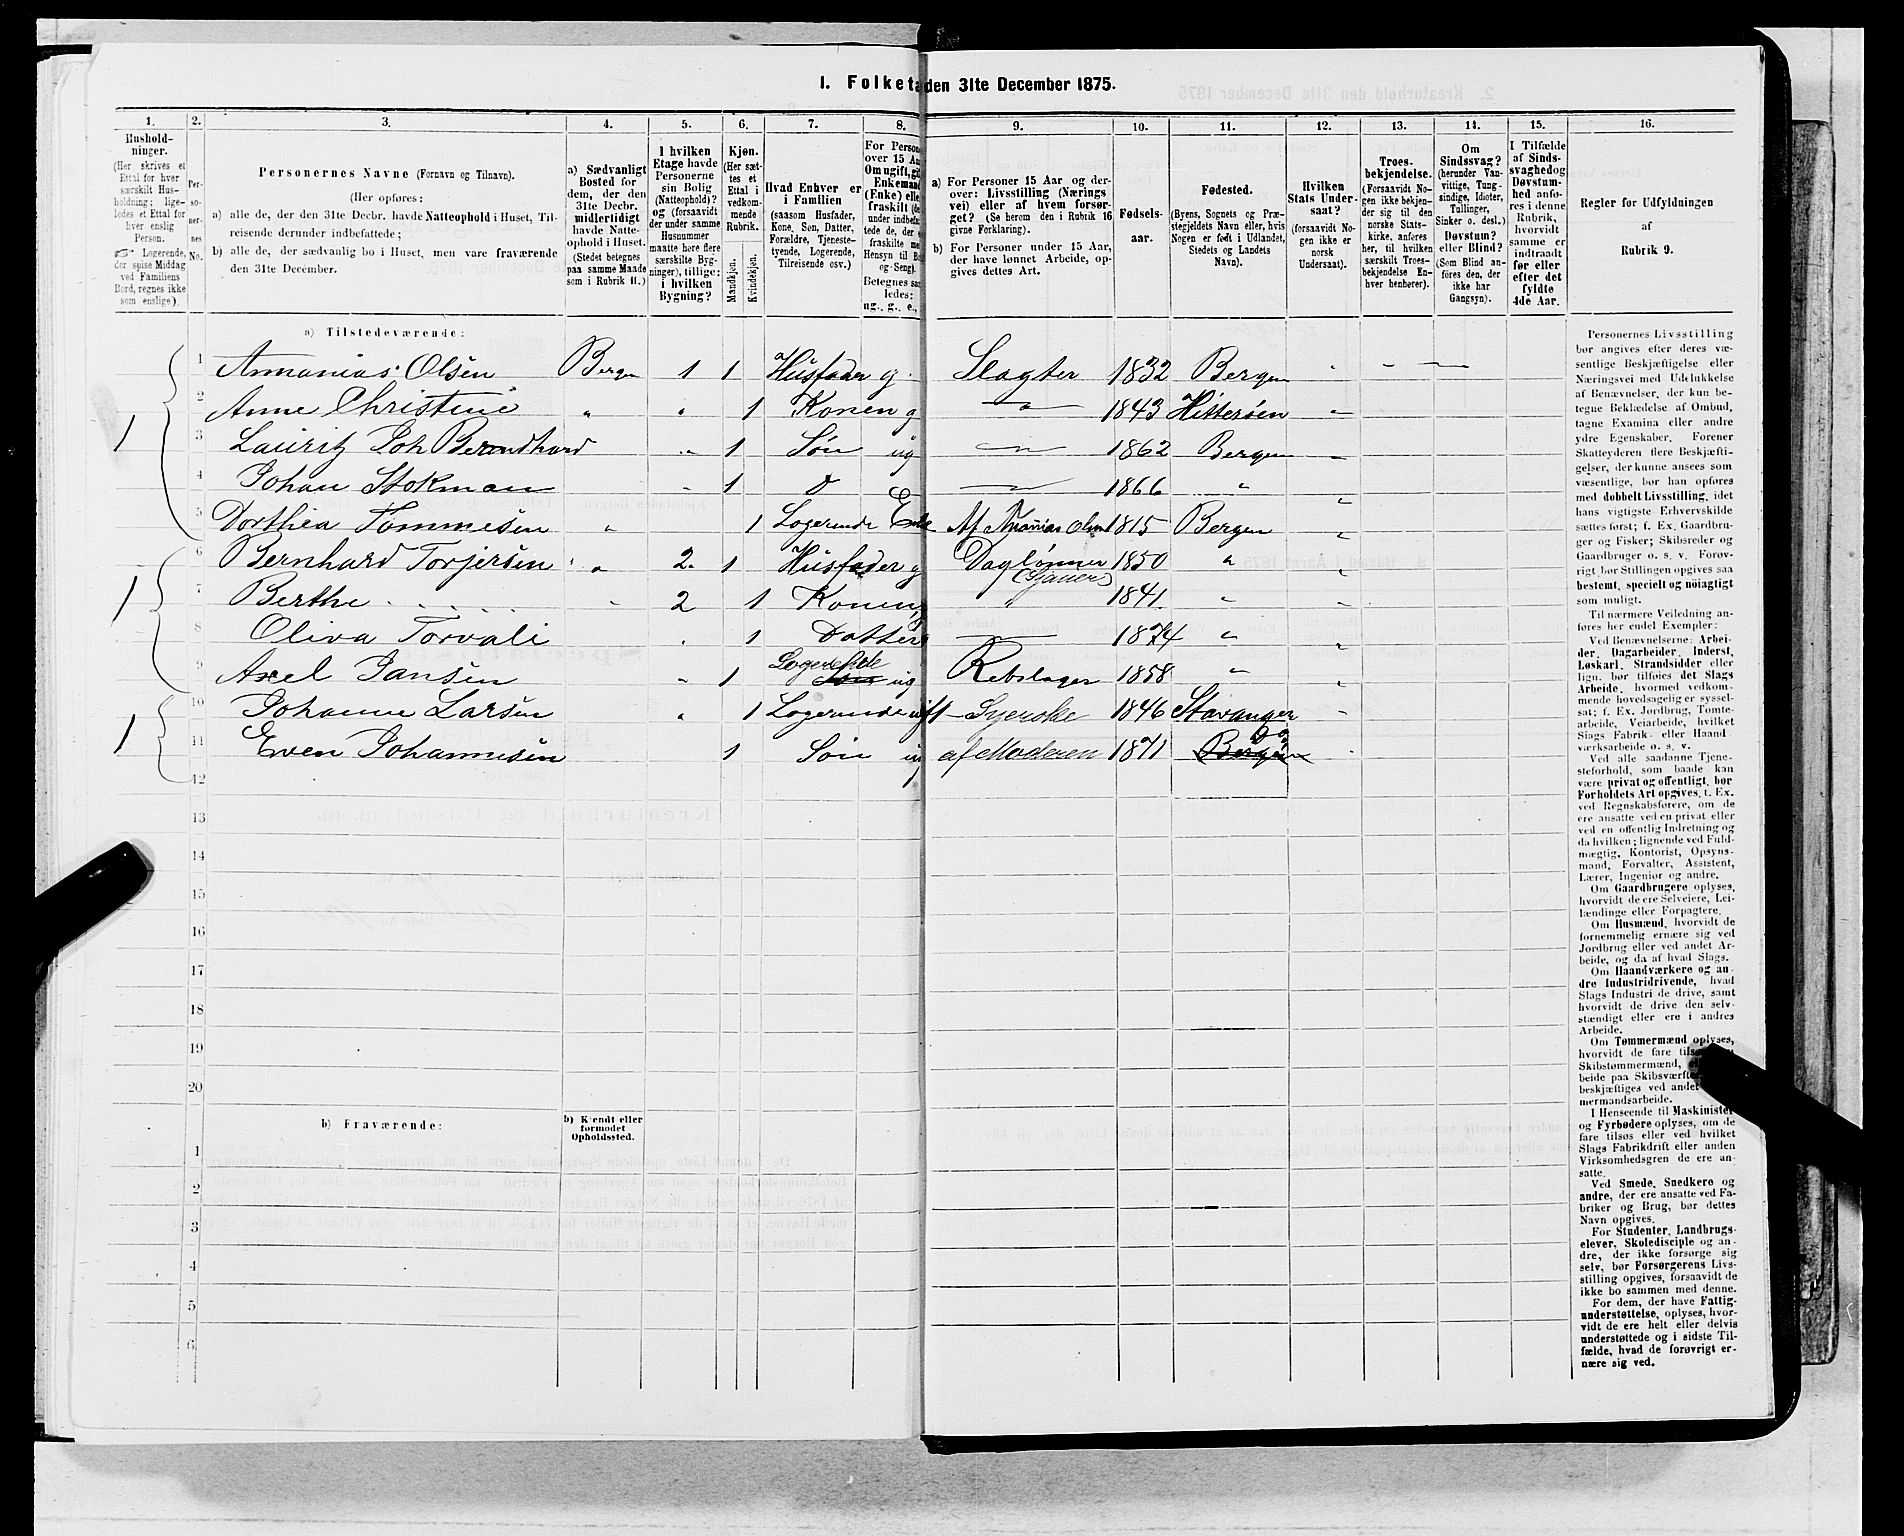 1. Folketa den 31te December 1875.
1. 2. 3. 4. 5. 6. 7. 8. 9. 10. 11. 12. 13. 14. 15. 16.
Hushold-
ninger.
(Her skrives et
Ettal for hver
særskilt Hus-
holdning; lige-
ledes et Ettal for
hver enslig
Person.
Logerende,
der spise Middag
ved Familiens
Bord, regnes ikke
som enslige).
Per-
so-
ner-
nes
No.
Personernes Navne (Fornavn og Tilnavn).
(Her opføres:
a) alle de, der den 31te Decbr. havde Natteophold i Huset, Til-
reisende derunder indbefattede;
b) alle de, der sædvanlig bo i Huset, men vare fraværende
den 31te December.
a) Sædvanligt
Bosted for
dem, der den
31te Decbr.
midlertidigt
havde Natte-
ophold i Huset.
(Stedet betegnes
paa samme Maade
som i Rubrik 11.)
I hvilken
Etage havde
Personerne
sin Bolig
(Natteophold)?
og (forsaavidt
der under samme
Husnummer
maatte høre flere
særskilte Byg-
ninger), tillige:
i hvilken
Bygning?
Kjøn.
(Her sæt-
tes et
Ettal i
vedkom-
mende
Rubrik.
Mandkjøn.
Kvindekjøn.
Hvad Enhver er
i Familien
(saasom Husfader,
Kone, Søn, Datter,
Forældre, Tjeneste-
tyende, Logerende,
Tilreisende osv.)
For Person
over 15 Aa
Om ugift, gi
Enkemand
(Enke) elle
fraskilt
under indbefa
tede de, der
fraskilte
Hensyn til Bo
og Seng).
Betegnes
ledes:
ug., g., e.,
a) For Personer 15 Aar og der-
over: Livsstilling (Nærings
vei) eller af hvem forsør-
get? (Se herom den i Rubrik 16
givne Forklaring).
b) For Personer under 15 Aar,
der have lønnet Arbeide, op-
gives dettes Art.
Fødsels-
aar.
Fødested.
(Byens, Sognets og Præ-
stegjeldets Navn eller, hvis
Nogen er født i Udlandet,
Stedets og Landets
Navn).
Hvilken
Stats Under-
saat?
(forsaavidt No-
gen ikke er
norsk
Undersaat).
Troes-
bekjendelse.
(Forsaavidt No-
gen ikke bekjen-
der sig til den
norske Stats-
kirke, anføres
her, til hvilken
særskilt Troes-
bekjendelse En-
hver henhører).
Om
Sindssvag?
(herunder Van-
vittige, Tung-
sindige, Idioter,
Tullinger,
Sinker o. desl.)
Døvstum?
eller Blind?
(Som Blind an-
føres den, der
ikke har
Gangsyn).
I Tilfælde
af Sinds-
svaghed og
Døvstum-
hed anfø-
res i denne
Rubrik,
hvorvidt
samme er
indtraadt
før eller
efter det
fyldte
4de Aar.
Regler for Udfyldningen
af
Rubrik 9.
a) Tilstedeværende:
1 Annanias Olsen Bergen 1 1 Husfader g Slagter 1832 Bergen
2 Anne Christine " " 1 Konen g 1843 Hitterøen
1 3 Lauritz Joh Berndhard " 1 Søn ug 1862 Bergen
4 Johan Stokman " 1 1866 "
5 Dorthea Tommesen " 1 Logerende Enke Af Ananias Olsen 1815 Bergen
6 Bernhard Torjersen " 2 1 Husfader g Daglønner 1850 "
(Gjauer)
1 7 Berthe " 2 1 Konen g " 1841 "
8 Oliva Torvali 1 Datter 1874 "
9 Axel Jansen " 1 Logerende Søn ug Rebslager 1858 "
10 Johanne Larsen " 1 Logerende ugift Syerske 1846 Stavanger
1 11 Even Johannesen 1 Søn ug af Moderen 1871 Do Bergen
12
13
14
15
16
17
18
19
20
b) Fraværende:
b) Kjendt eller
formodet
Opholdssted.
1
2
3
4
5
6
Personernes Livsstilling
bør angives efter deres væ-
sentlige Beskjæftigelse eller
Næringsvei med Udelukkelse
af Benævnelser, der kun be-
tegne Beklædelse af Ombud,
tagne Examina eller andre
ydre Egenskaber. Forener
Skatteyderen flere Beskjæfti-
gelser, der kunne ansees som
væsentlige, bør han opføres
med dobbelt Livsstilling, idet
hans vigtigste Erhvervskilde
sættes først; f. Ex. Gaardbru-
ger og Fisker; Skibsreder og
Gaardbruger o. s. v. Forøv-
rigt bør Stillingen opgives saa
bestemt, specielt og nøiagtigt
som muligt.
Til nærmere Veiledning an-
føres her endel Exempler:
Ved Benævnelserne: Arbei-
der, Dagarbeider, Inderst,
Løskarl, Strandsidder eller
lign. bør tilføies det Slags
Arbeide, hvormed vedkom-
mende hovedsagelig er syssel-
sat; f. Ex. Jordbrug, Tomte-
arbeide, Veiarbeide, hvilket
Slags Fabrik- eller Haand
værksarbeide o. s. v.
Ved alle saadanne Tjene-
steforhold, som baade kan
være privat og offentligt, bør
Forholdets Art opgives, t. Ex.
ved Regnskabsførere, om de
ere ansatte ved en privat eller
ved en offentlig Indretning og
da hvilken; lignende ved Fuld-
mægtig, Kontorist, Opsyns-
mand, Forvalter, Assistent,
Lærer, Ingeniør og andre.
Om Gaardbrugere oplyses,
hvorvidt de ere Selveiere, Lei-
lændinge eller Forpagtere.
Om Husmænd, hvorvidt de
fornemmelig ernære sig ved
Jordbrug eller ved andet Ar-
beide, og da af hvad Slags.
Om Haandværkere og an-
dre Industridrivende, hvad
Slags Industri de drive, samt
hvorvidt de drive den selv-
stændigt eller ere i andres
Arbeide.
Om Tømmermænd oplyses,
hvorvidt de fare
Skibstømmermænd,
beide paa Skibsværft
beskjæftiges ved andet
mermandsarbeide.
I Henseende til Maskinister
og Fyrbødere oplyses, om de
fare tilsøs eller ved hvilket
Slags Fabrikdrift eller anden
Virksomhedsgren de ere an-
satte.
Ved Smede, Snedkere og
andre, der ere ansatte ved Fa-
briker og Brug, bør dettes
Navn opgives.
For Studenter, Landbrugs-
elever, Skoledisciple og an-
dre, der ikke forsørge sig
selv, bør Forsørgerens Livs-
stilling opgives, forsaavidt de
ikke bo sammen med denne.
For dem, der have Fattig-
understøttelse, oplyses, hvor-
vidt de ere helt eller delvis
understøttede og i sidste Til-
fælde, hvad de forøvrigt er-
nære sig ved.